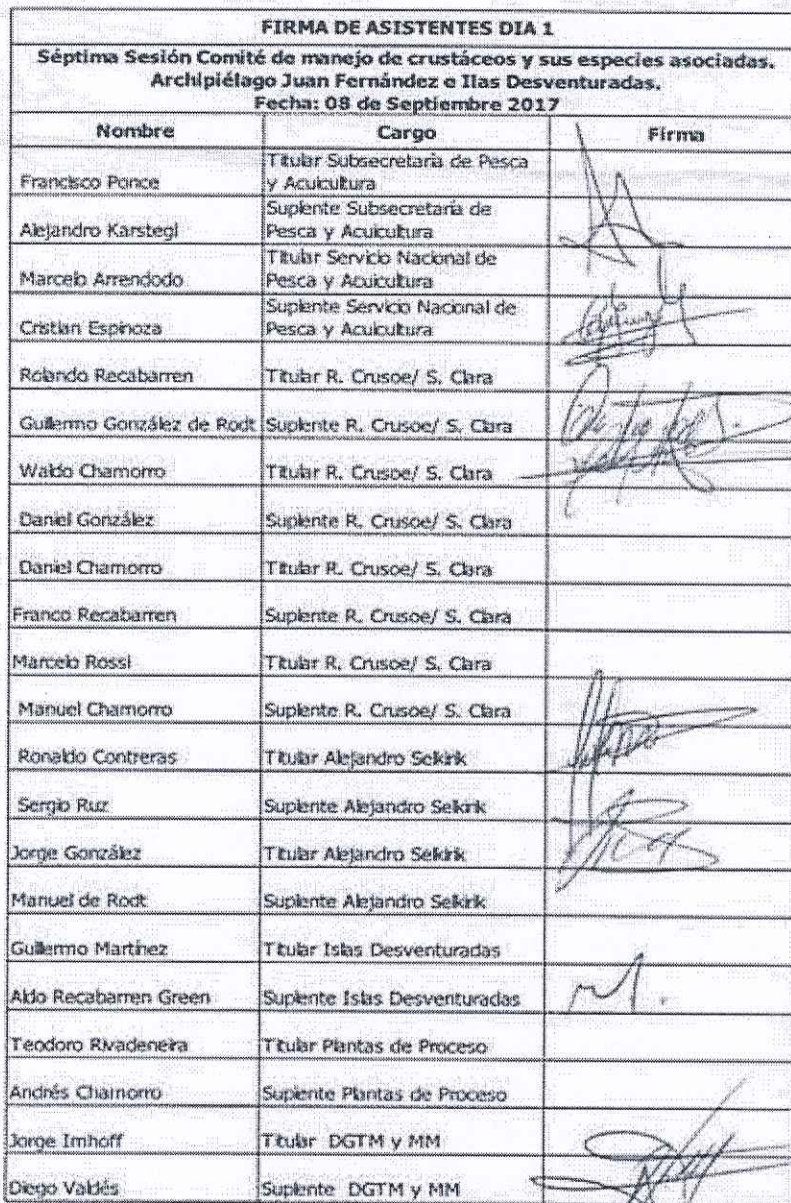 FIRMA DE ASISTENTES DIA 1
Séptima Sesión Comité de manejo de crustáceos y sus especies asociadas.
Archipiélago Juan Fernández e Ilas Desventuradas.
Fecha: 08 de Septiembre 2017
Nombre Cargo Firma
Francisco Ponce Titular Subsecretaria de Pesca y Acuicultura
Alejandro Karstegl Suplente Subsecretaria de Pesca y Acuicultura
Marcelo Arrendodo Titular Servicio Nacional de Pesca y Acuicultura
Cristian Espinoza Suplente Servicio Nacional de Pesca y Acuicultura
Rolando Recabarren Titular R. Crusoe/ S. Clara
Guillermo González de Rodt Suplente R. Crusoe/ S. Clara
Waldo Chamorro Titular R. Crusoe/ S. Clara
Daniel González Suplente R. Crusoe/ S. Clara
Daniel Chamorro Titular R. Crusoe/ S. Clara
Franco Recabarren Suplente R. Crusoe/ S. Clara
Marcelo Rossi Titular R. Crusoe/ S. Clara
Manuel Chamorro Suplente R. Crusoe/ S. Clara
Ronaldo Contreras Titular Alejandro Selkirk
Sergio Ruz Suplente Alejandro Selkirk
Jorge González Titular Alejandro Selkirk
Manuel de Rodt Suplente Alejandro Selkirk
Guillermo Martínez Titular Islas Desventuradas
Aldo Recabarren Green Suplente Islas Desventuradas
Teodoro Rivadeneira Titular Plantas de Proceso
Andrés Chamorro Suplente Plantas de Proceso
Jorge Imhoff Titular DGTM y MM
Diego Valdés Suplente DGTM y MM